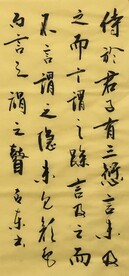 侍於君子有三愆言未及
之而言謂之躁言及之而
不言謂之隱未見顏色
而言之謂之瞽